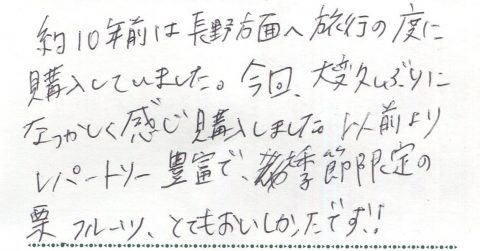 約10年前は長野方面へ旅行の度に
購入していました。今回、大変久しぶりに
なつかしく感じ購入しました。以前より
レパートリー豊富で、季節限定の
栗、フルーツ、とてもおいしかったです!!